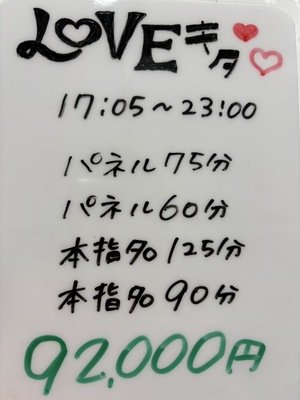 LOVEキタ
17:05~23:00
パネル75分
パネル60分
本指名125分
本指名90分
92,000円